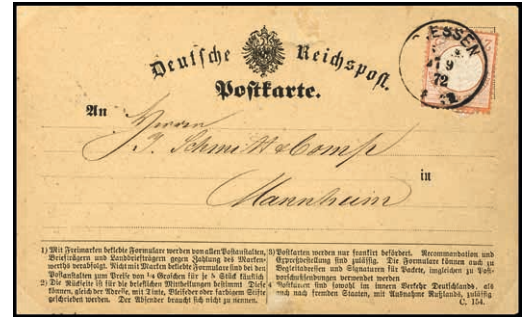 Deutsche Reichspost.
Postkarte.
ESSEN
9
72
An
Herrn
J. Schmitt & Comp
in
Mannheim
1) Mit Freimarken beklebte Formulare werden von allen Postanstalten,
Briefträgern und Landbriefträgern gegen Zahlung des Marken-
werths verabfolgt. Nicht mit Marken beklebte Formulare sind bei den
Postanstalten zum Preise von ¼ Groschen für je 5 Stück käuflich
2) Die Rückseite ist für die brieflichen Mittheilungen bestimmt. Diese
können, gleich der Adresse, mit Tinte, Bleifeder oder farbigem Stifte
geschrieben werden. Der Absender braucht sich nicht zu nennen.
3) Postkarten werden nur frankirt befördert. Recommandation und
Expreßbestellung sind zulässig. Die Formulare können auch zu
Begleitadressen und Signaturen für Packete, imgleichen zu Post-
vorschußsendungen verwendet werden
4 Postkarten sind sowohl im innern Verkehr Deutschlands, als
auch nach fremden Staaten, mit Ausnahme Rußlands, zulässig
C. 154.